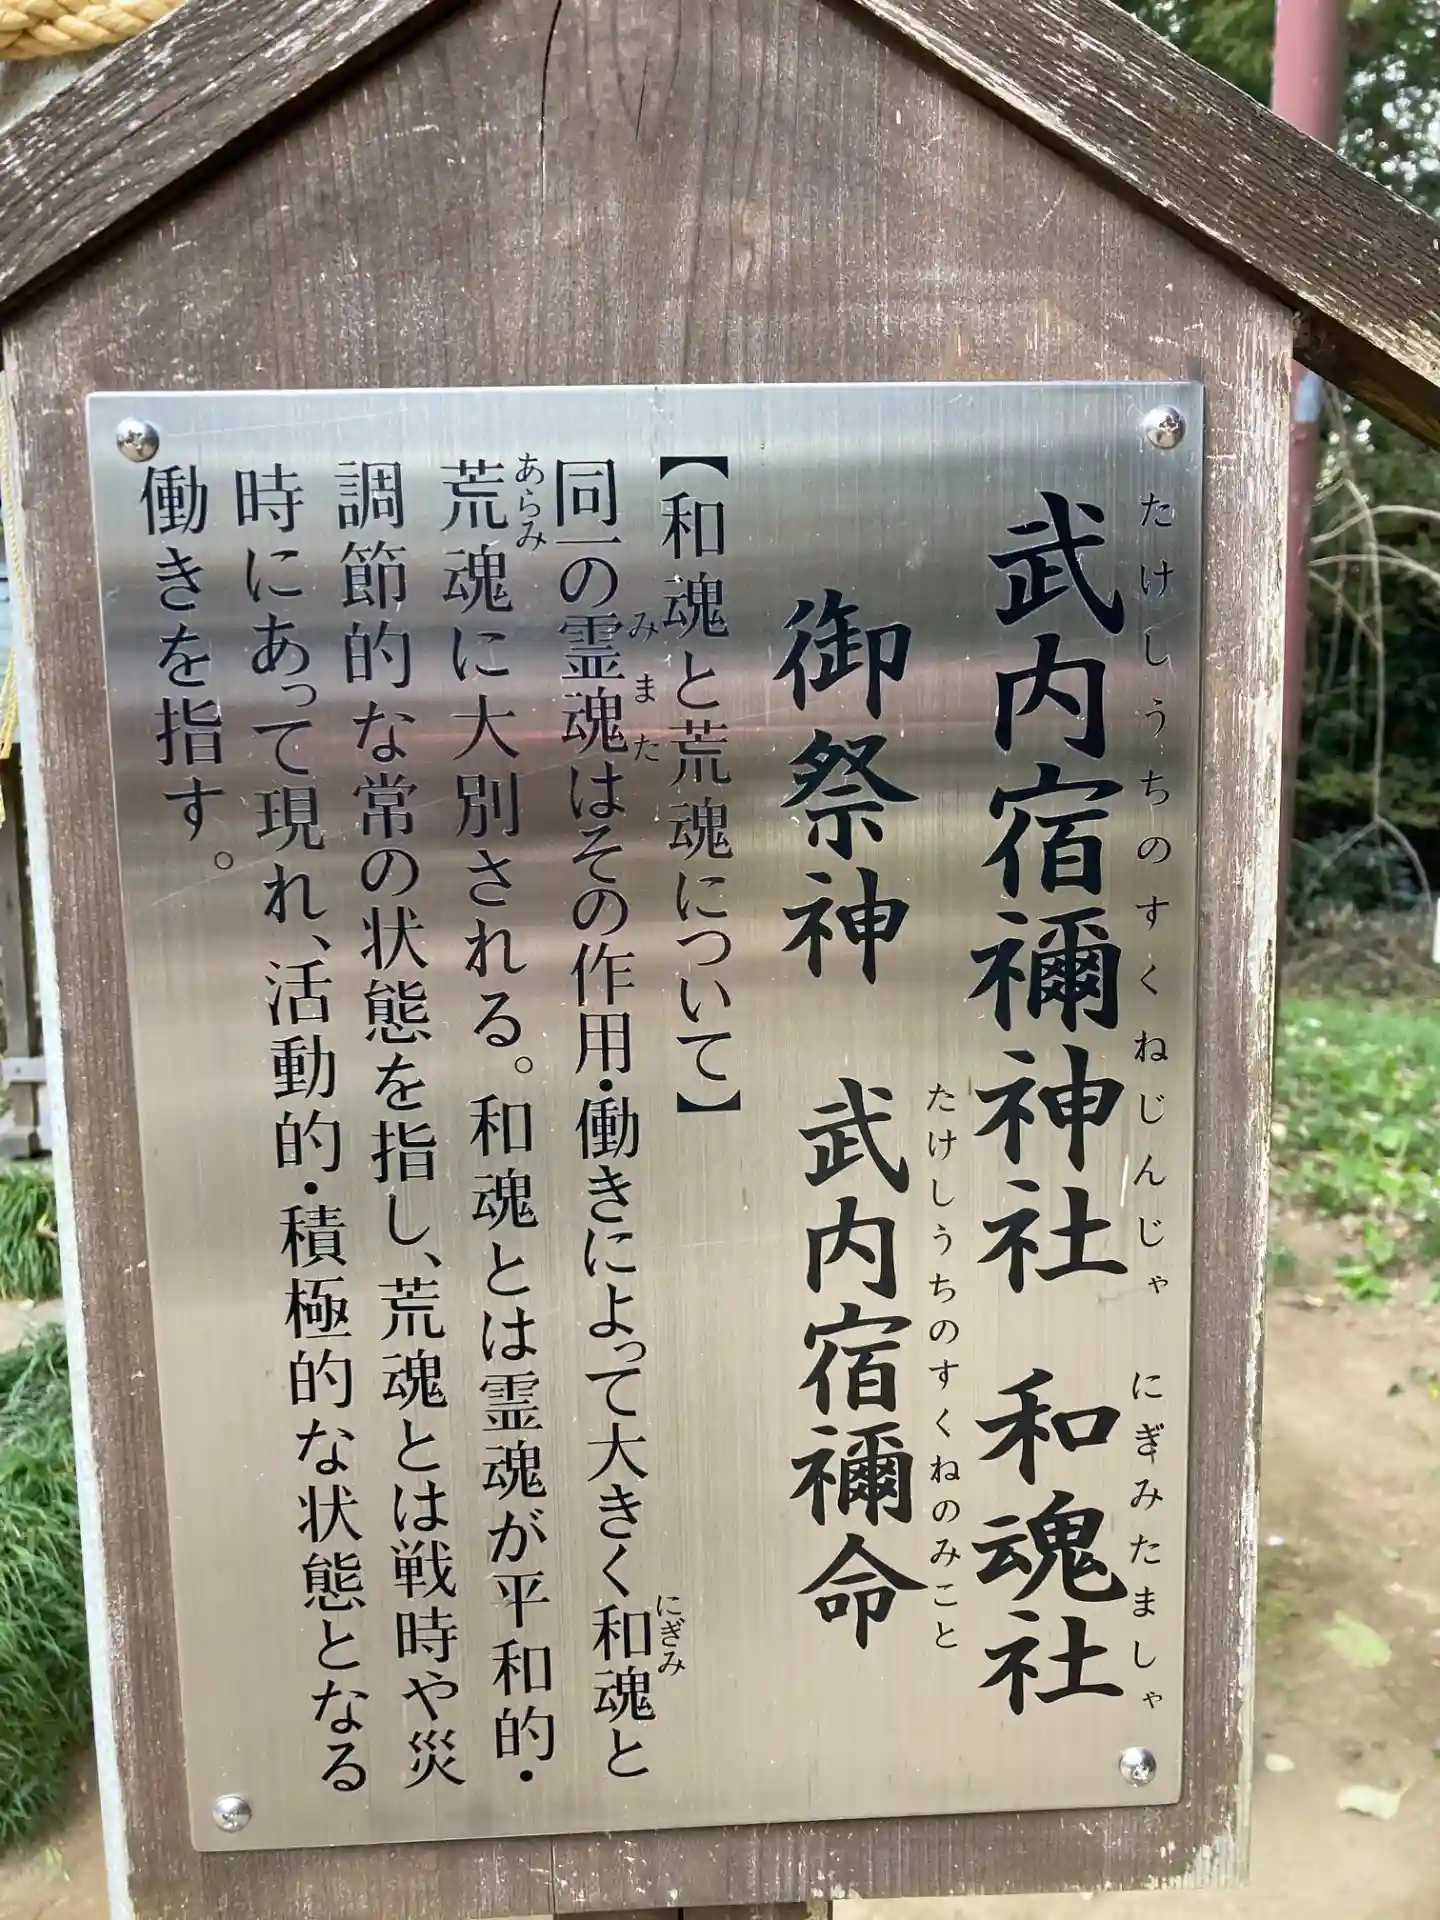 武内宿禰神社 和魂社
たけしうちのすくねじんじゃ にぎみたましゃ
御祭神 武内宿禰命
たけしうちのすくねのみこと
【和魂と荒魂について】
同一の霊魂はその作用・働きによって大きく和魂と
みまた
にぎみ
荒魂に大別される。和魂とは霊魂が平和的・
あらみ
調節的な常の状態を指し、荒魂とは戦時や災
時にあって現れ、活動的・積極的な状態となる
働きを指す。